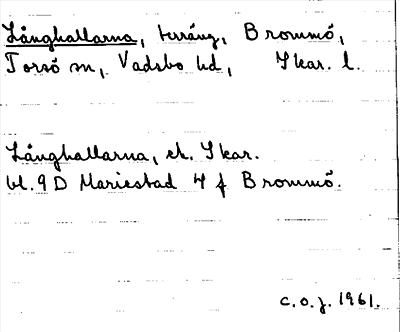 Långhallarna, terräng, Brommö,
Torsö sn, Vadsbo hd, Skar. l.
Långhallarna, ek. Skar.
bl. 9D Mariestad 4 f Brommö.
c.o.j. 1961.